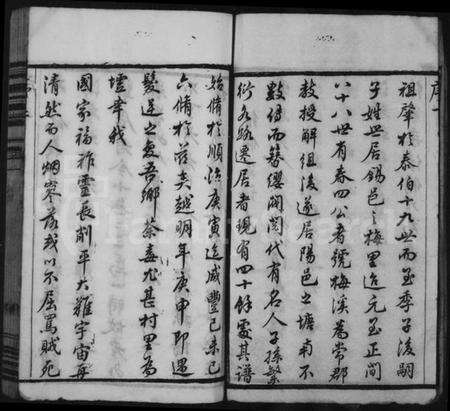 序
祖肇於泰伯十九世而至季子後嗣
子姓世居錫邑之梅里迨元至正間
八十八世有春四公者號梅溪為常郡
教授解組後遂居陽邑之塘南不
數傳而簪纓閥閱代有名人子孫繁
衍各路遷居者現有四十餘處其譜
始脩於順治庚寅迄咸豐己未已
六脩於茲矣越明年庚申即遇
髮逆之變吾鄉荼毒尤甚村里為
墟幸我
國家福祚靈長削平大難宇宙再
清然而人烟寥落我以不屈罵賊死